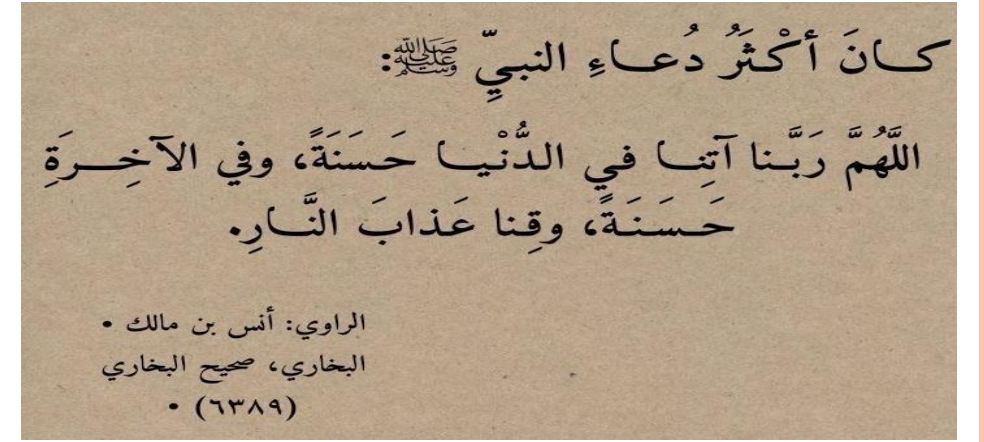 كــانَ أكْـثَرُ دُعــاءِ النبيِّ ﷺ:
اللَّهُمَّ رَبَّـنا آتِنــا في الدُّنْيــا حَـسَنَةً، وفي الآخِــرةِ
حَــسَـنَـةً، وقِنا عَـذابَ النَّــارِ.
الراوي: أنس بن مالك •
البخاري، صحيح البخاري
(٦٣٨٩) •